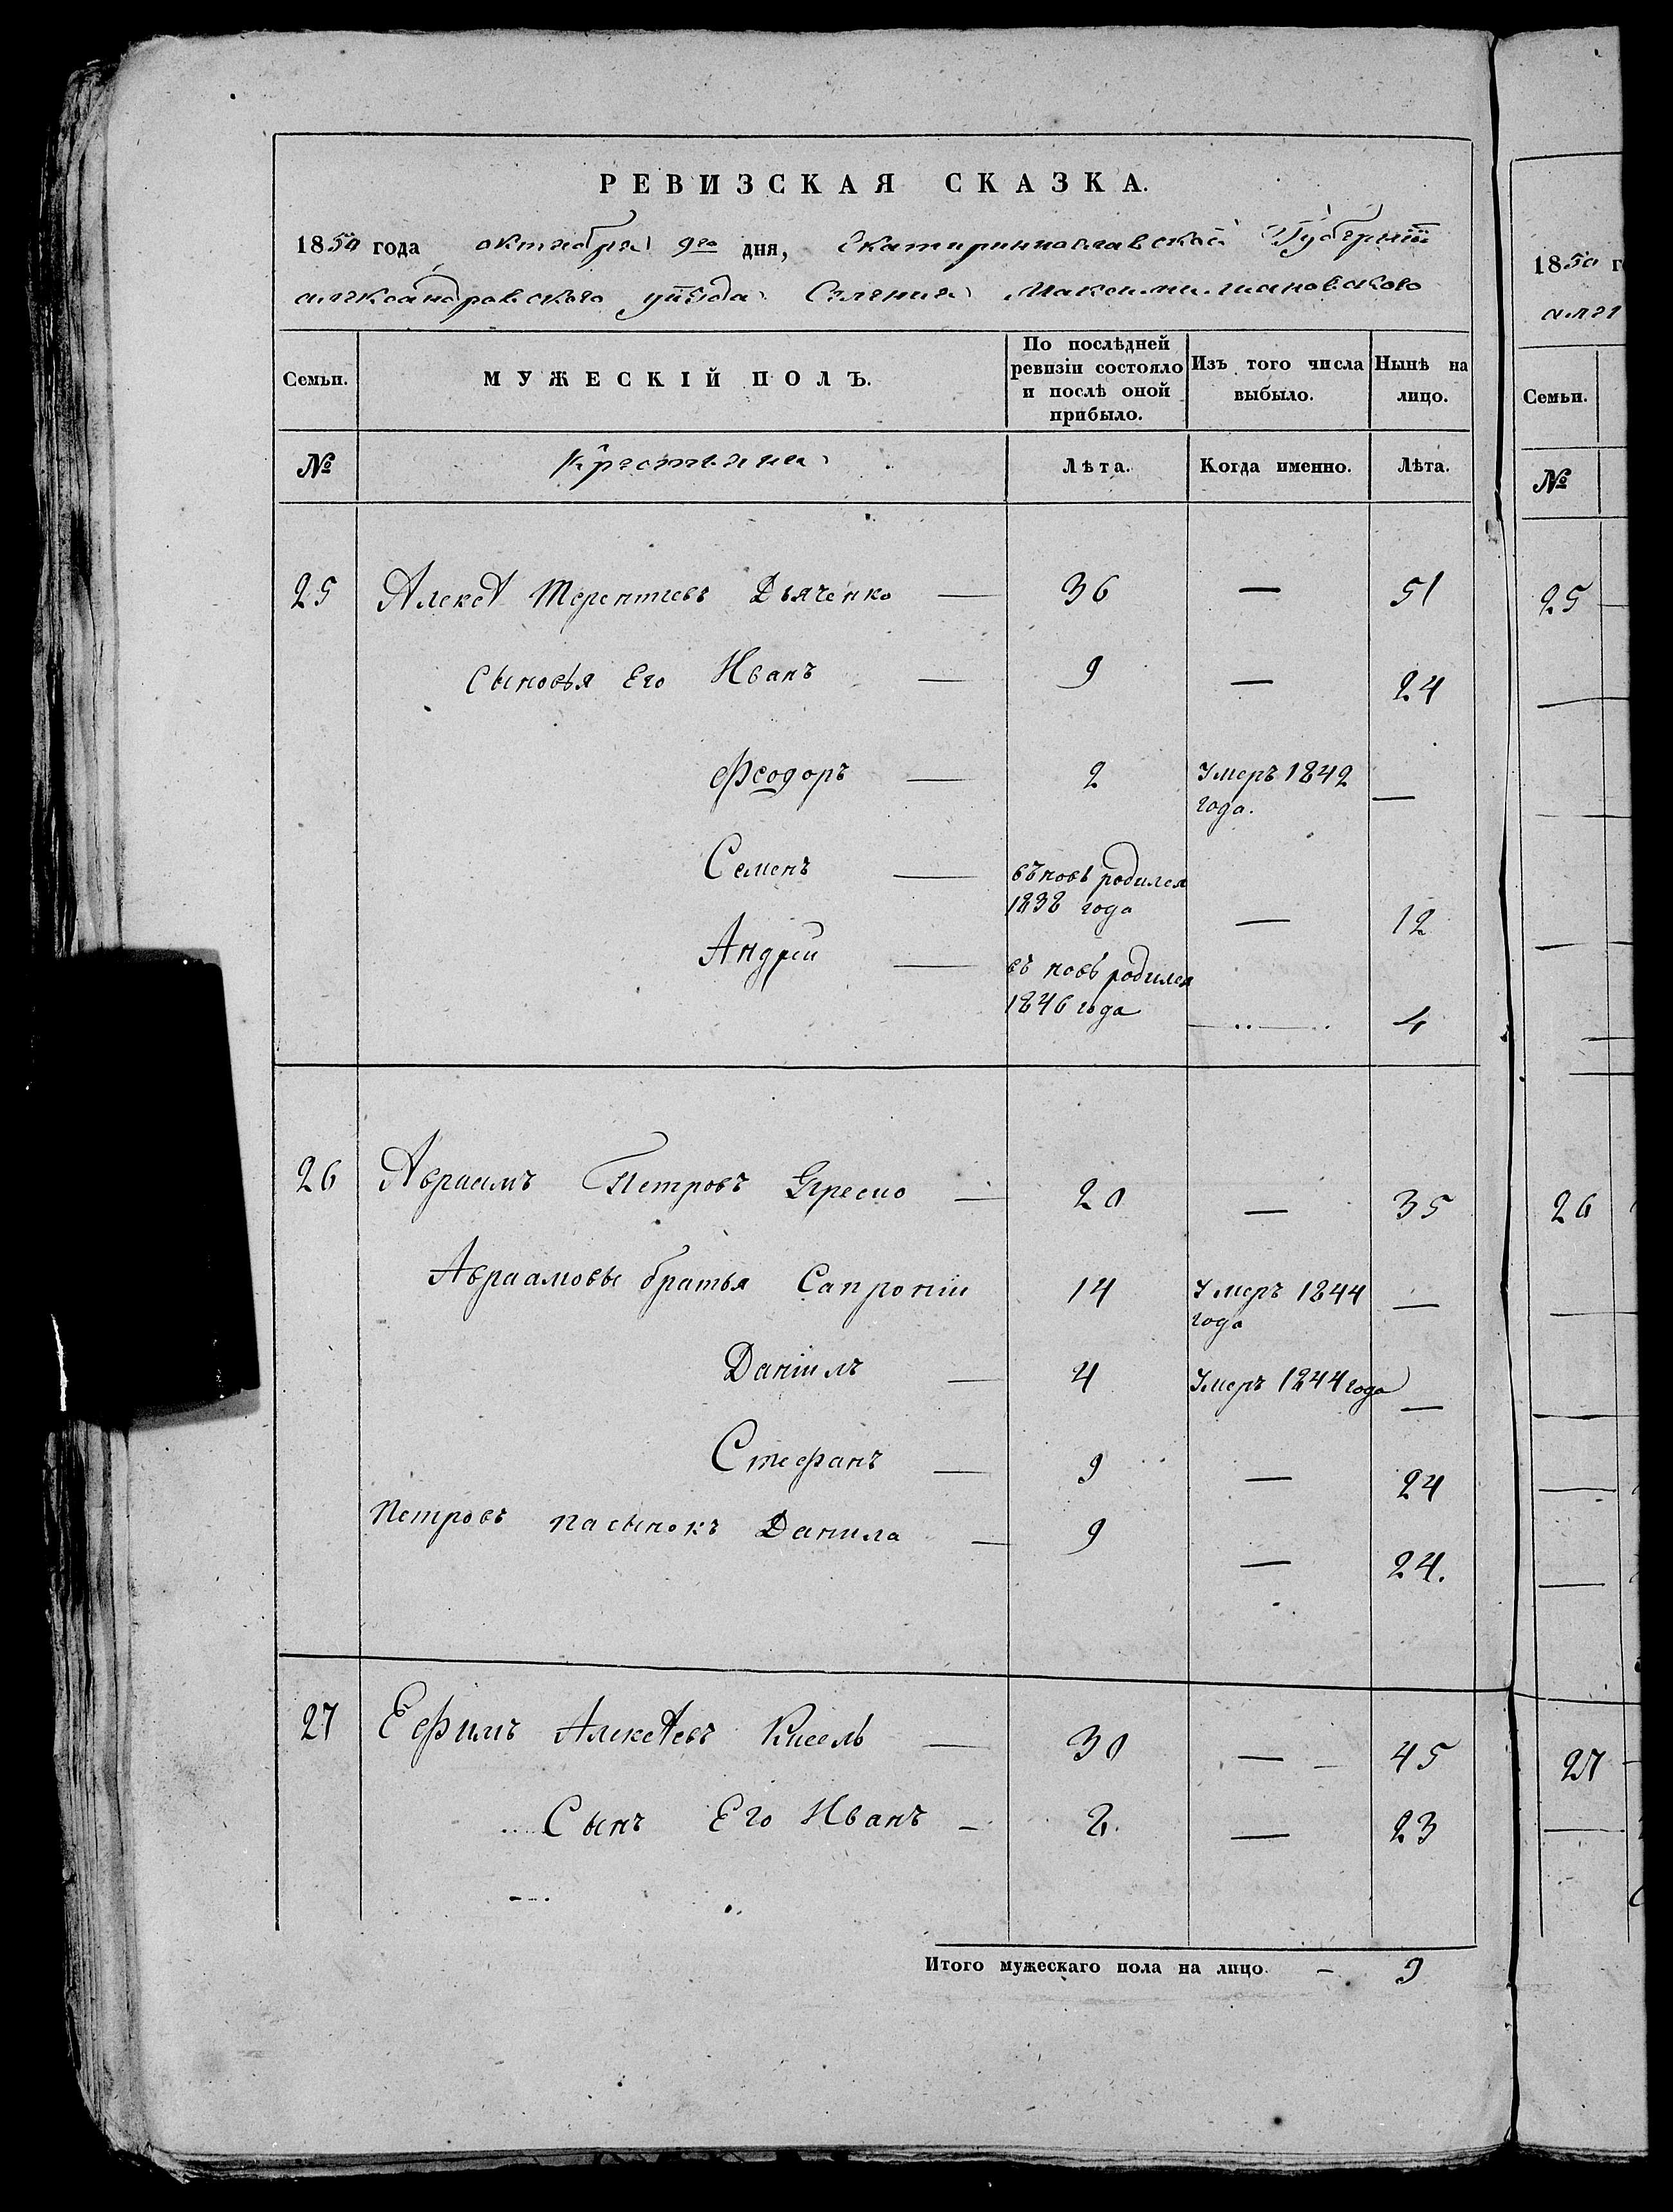 РЕВИЗСКАЯ СКАЗКА.
1850 года октября 9го дня, Екатиринославской Губернии
александровского уѣзда Селения Максимилиановского
Семьи. МУЖЕСКІЙ ПОЛЪ. По послѣдней ревизіи состояло и послѣ оной прибыло. Изъ того числа выбыло. Нынѣ на лицо.
№ Крестьяне Лѣта. Когда именно. Лѣта.
25 Алексѣ Терентиевъ Дьяченко — 36 — 51
Сыновья Его Иванъ — 9 — 24
Феодоръ — 2 Умеръ 1842 года. —
Семенъ — въновь родился 1838 года — 12
Андреи — въ новь родился 1846 года — 4
26 Авраамъ Петровъ — 20 — 35
Авраамовы братья Сапронии 14 Умеръ 1844 года —
Даніилъ — 4 Умеръ 1844 года —
Стефанъ — 9 — 24
Петровъ пасынокъ Данила — 9 — 24.
27 Ефимъ Алексѣевъ Кисель — 30 — 45
Сынъ Его Иванъ — 2. — 23
Итого мужескаго пола на лицо — 9
1850 г
алек
Семьи.
№
25
26
27